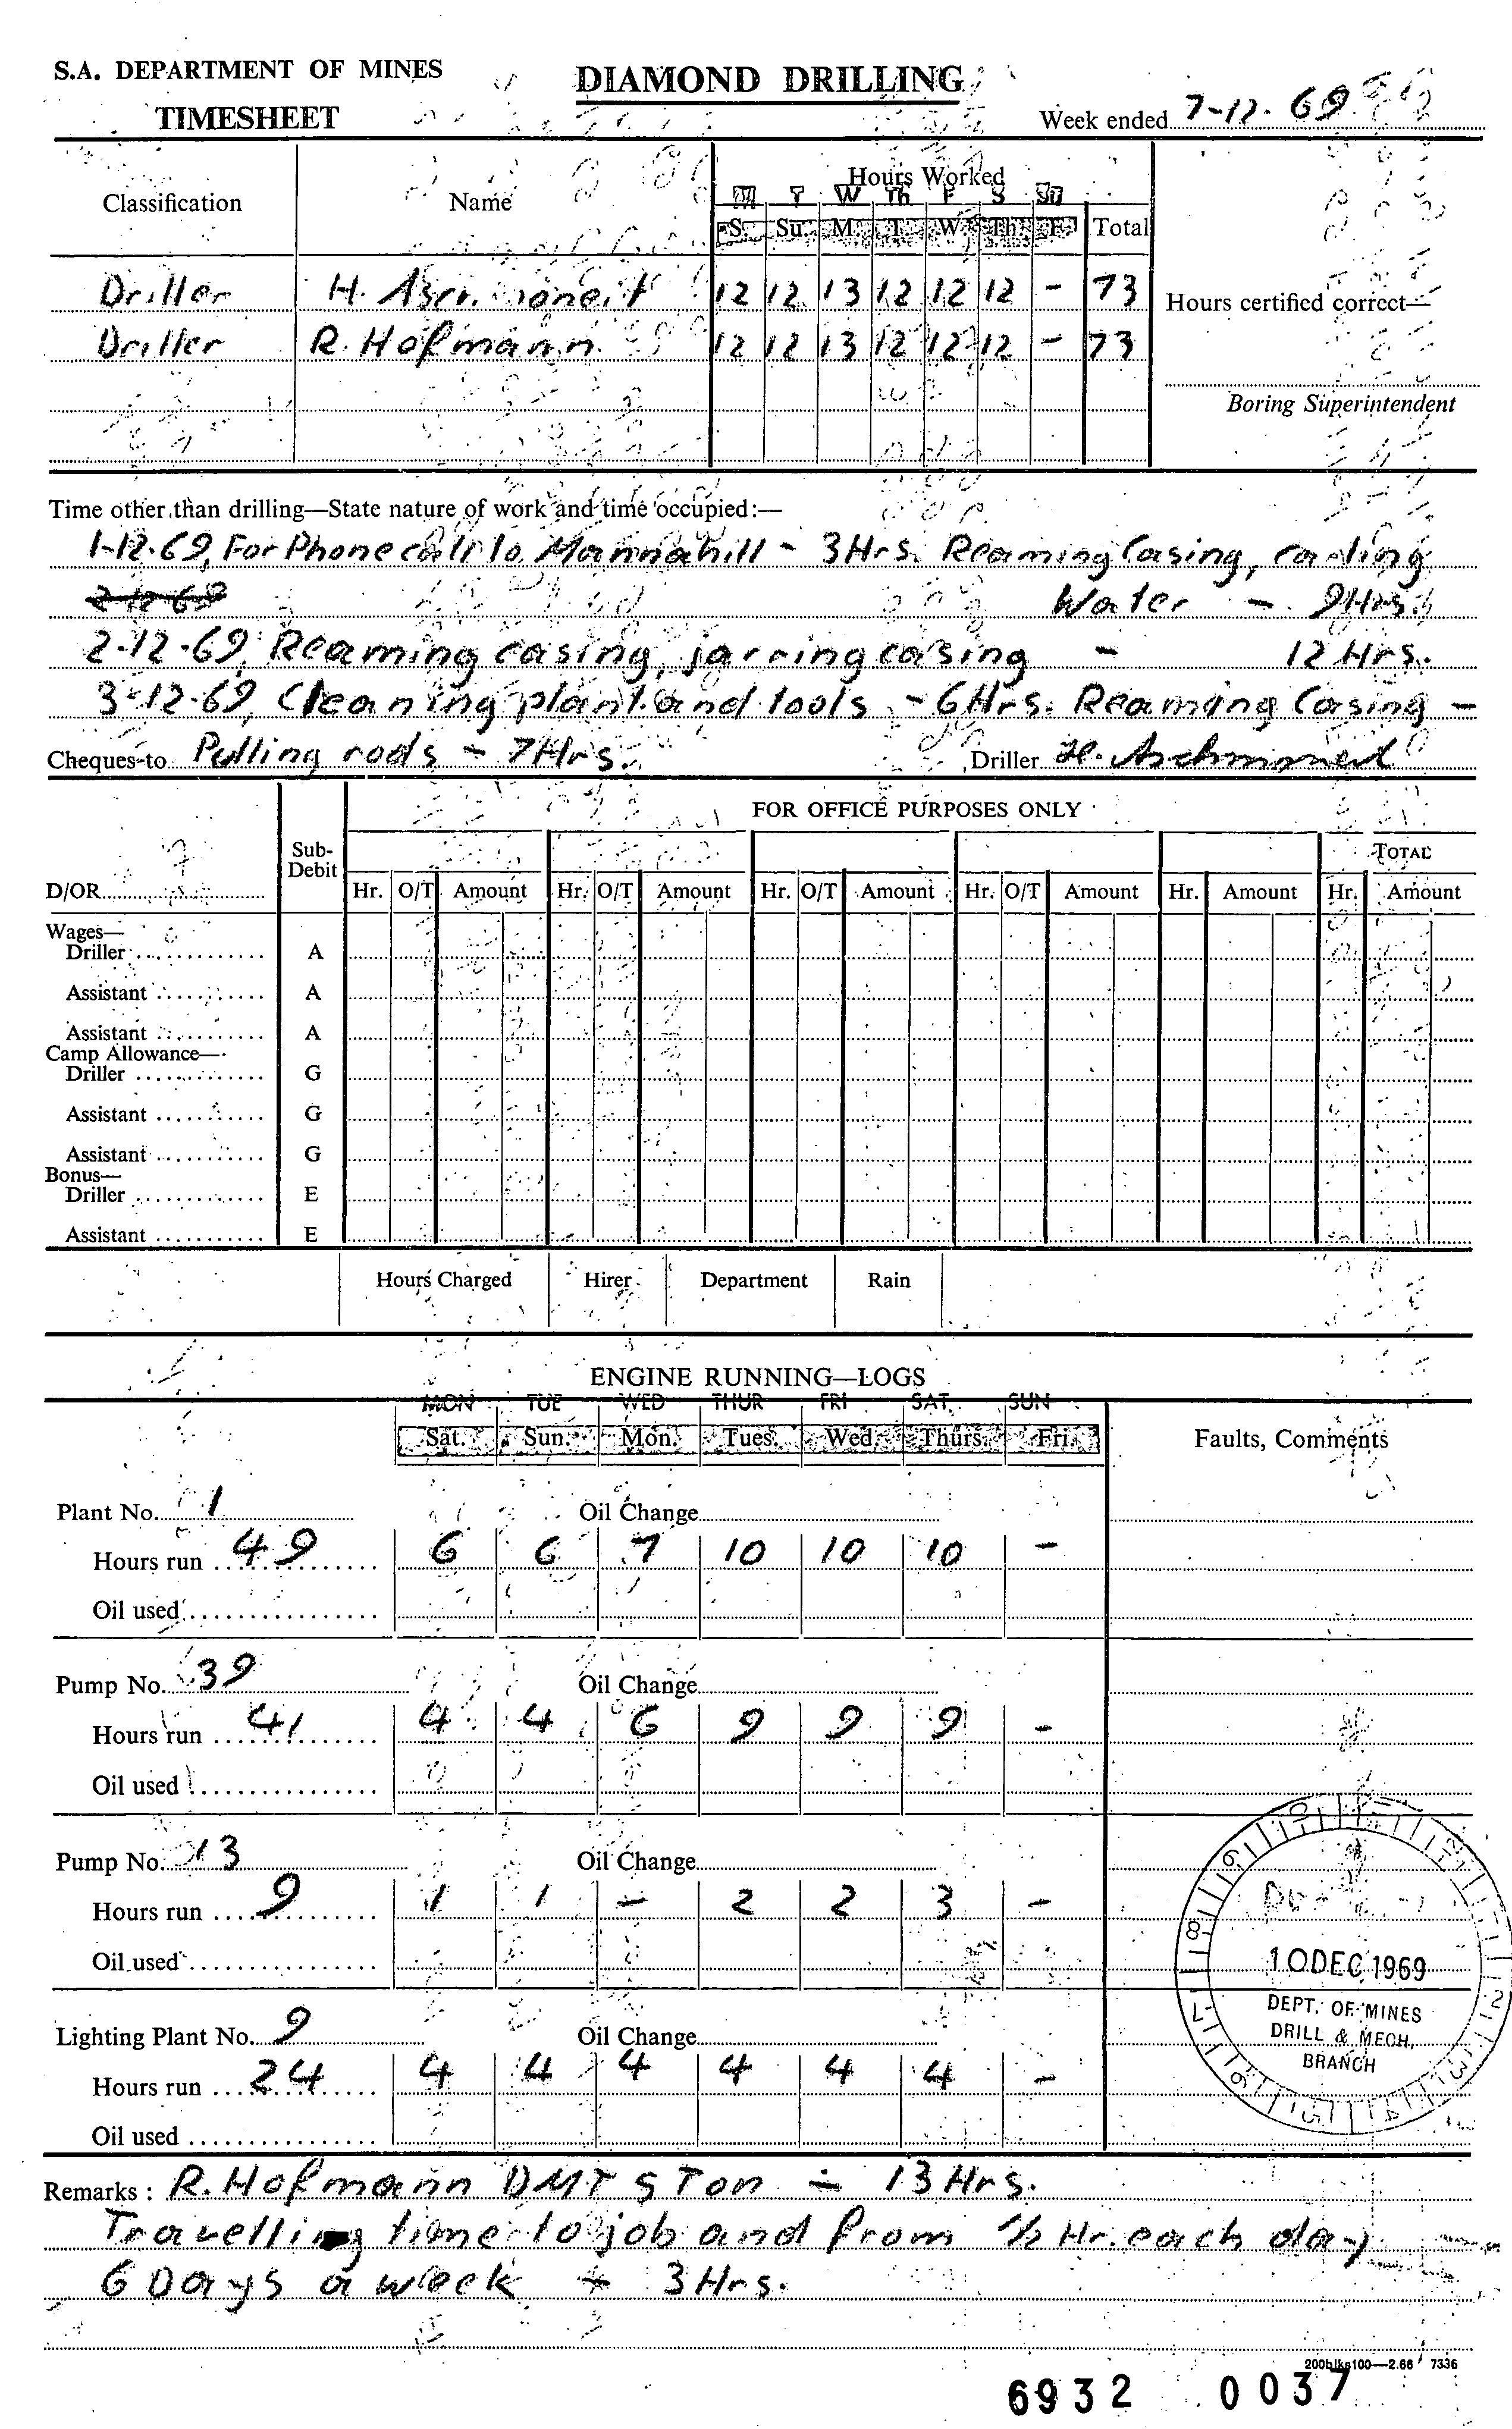 S.A. DEPARTMENT OF MINES
DIAMOND DRILLING
TIMESHEET
Week ended 7-12-69
Classification Name Hours Worked
M T W Th F S Su
S. Su. M. T. W. Th. F. Total
Driller H. 12 12 13 12 12 12 - 73
Hours certified correct—
Driller R. Hofmann 12 12 13 12 12 12 - 73
Boring Superintendent
Time other than drilling—State nature of work and time occupied:—
1-12-69, For Phone call to Mannahill - 3 Hrs. Reaming Casing, carting
2-12-69 Water - 9 Hrs.
2-12-69, Reaming casing, jarring casing - 12 Hrs.
3-12-69, Cleaning plant and tools - 6 Hrs. Reaming Casing -
Cheques to Pulling rods - 7 Hrs. Driller H.
FOR OFFICE PURPOSES ONLY
Sub-Debit
TOTAL
D/OR Hr. O/T Amount Hr. O/T Amount Hr. O/T Amount Hr. O/T Amount Hr. Amount Hr. Amount
Wages—
Driller A
Assistant A
Assistant A
Camp Allowance—
Driller G
Assistant G
Assistant G
Bonus—
Driller E
Assistant E
Hours Charged Hirer Department Rain
ENGINE RUNNING—LOGS
MON TUE WED THUR FRI SAT SUN
Sat. Sun. Mon. Tues. Wed. Thurs. Fri. Faults, Comments
Plant No. 1 Oil Change
Hours run 49 6 6 7 10 10 10 -
Oil used
Pump No. 39 Oil Change
Hours run 41 4 4 6 9 9 9 -
Oil used
Pump No. 13 Oil Change
Hours run 9 1 1 - 2 2 3 -
Oil used
10 DEC 1969
DEPT. OF MINES
DRILL & MECH.
BRANCH
Lighting Plant No. 9 Oil Change
Hours run 24 4 4 4 4 4 4 -
Oil used
Remarks: R. Hofmann DMT 5 Ton - 13 Hrs.
Travelling time to job and from 1/2 Hr. each day
6 Days a week - 3 Hrs.
200blks100—2.66 7336
6932 0037